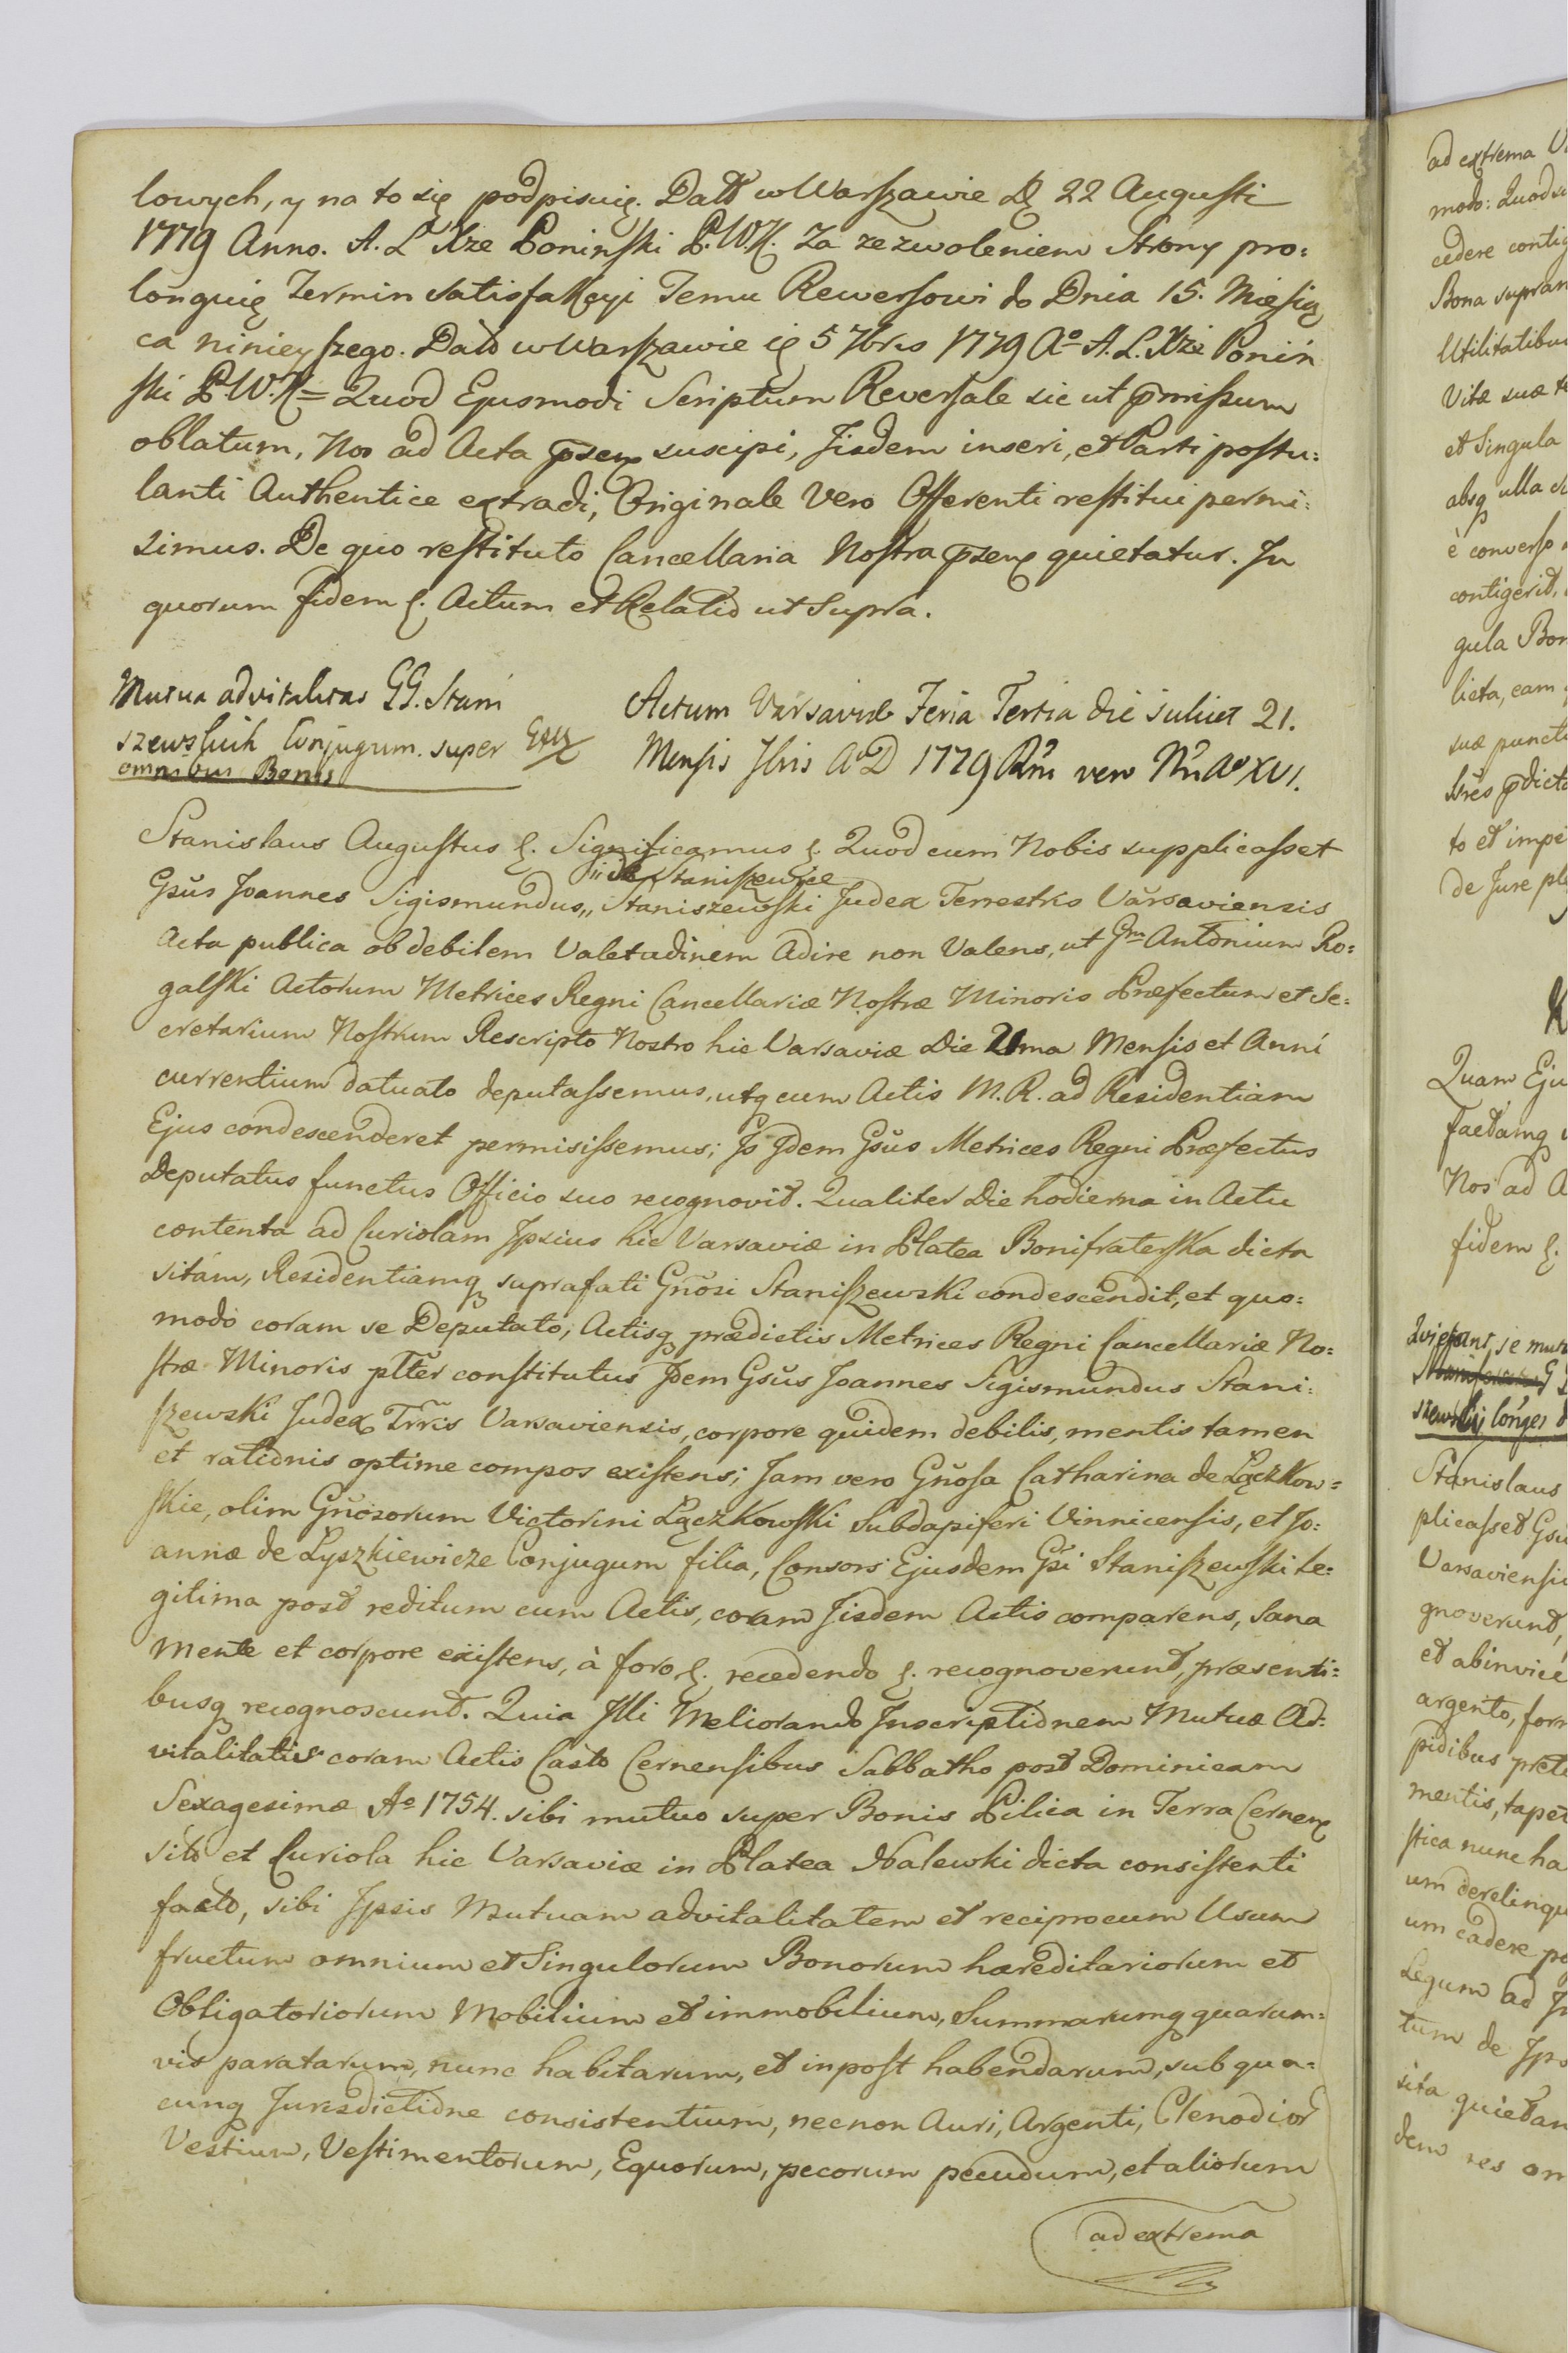 lowych, y na to się podpisuię. Datt w Warszawie d. 22 Augusti
1779 Anno. A. L. Xże Poninski P.W.K. Za zezwoleniem Strony pro:
longuię Termin Satisfakcyi Temu Rewersowi do Dnia 15. Miesią
ca ninieyszego. Datt w Warszawie 5 7bris 1779 Aº A. L. Xże Poniń
ski P.W.K= Quod Ejusmodi Scriptum Reversale sic ut p̄missum
oblatum, Nos ad Acta p̄sen suscipi, Jisdem inseri, et Parti postu:
lanti Authentice extradi, Originale Vero Offerenti restitui permi:
simus. De quo restituto Cancellaria Nostra p̄sen quietatur. In
quorum fidem &. Actum et Relatio ut Supra.
Mutua advitalitas GG. Stani
szewskich Conjugum. super
omnibus Bonis
Actum Varsaviæ Feria Tertia die scilicet 21.
Mensis 7bris AºD 1779 Rñi vero Nri Aº XVI.
Stanislaus Augustus &. Significamus &. Quod cum Nobis supplicasset
de Staniszewice
Gsus Joannes Sigismundus,, Staniszewski Judex Terrestris Varsaviensis
Acta publica ob debilem Valetudinem Adire non Valens, ut Gm Antonium Ro:
galski Actorum Metrices Regni Cancellariæ Nostræ Minoris Præfectum et Se:
cretarium Nostrum Rescripto Nostro hic Varsaviæ Die 21ma Mensis et Anni
currentium datuato deputassemus, utq cum Actis M. R. ad Residentiam
Ejus condescenderet permisissemus; Is Idem Gsus Metrices Regni Præfectus
Deputatus functus Officio suo recognovit. Qualiter Die hodierna in Actu
contenta ad Curiolam Ipsius hic Varsaviæ in Platea Bonifraterska dicta
sitam, Residentiamq suprafati Gnosi Staniszewski condescendit, et quo:
modo coram se Deputato, Actisq prædictis Metrices Regni Cancellariæ No:
stræ Minoris pltter constitutus Idem Gsus Joannes Sigismundus Stani:
szewski Judex Trris Varsaviensis, corpore quidem debilis, mentis tamen
et rationis optime compos existens; Jam vero Gnosa Catharina de Łączkow=
skie, olim Gnosorum Victorini Łączkowski Subdapiferi Vinnicensis, et Jo:
annæ de Lyszkiewicze Conjugum filia, Consors Ejusdem Gsi Staniszewski Le:
gitima post reditum cum Actis, coram Iisdem Actis comparens, Sana
Mente et corpore existens, à foro &. recedendo &. recognoverunt, præsenti:
busq recognoscunt. Quia Illi Meliorando Inscriptionem Mutuæ Ad:
vitalitatis coram Actis Castr Cernensibus Sabbatho post Dominicam
Sexagesimæ Aº 1754. sibi mutuo super Bonis Pilica in Terra Cernen
sitis et Curiola hic Varsaviæ in Platea Nalewki dicta consistenti
facto, sibi Ipsis Mutuam advitalitatem et reciprocum Usum
fructum omnium et Singulorum Bonorum hæreditariorum et
Obligatoriorum Mobilium et immobilium, Summarumq quarum=
vis paratarum, nunc habitarum, et inpost habendarum, sub qua=
cunq Jurisdictione consistentium, necnon Auri, Argenti, Clenodior
Vestium, Vestimentorum, Equorum, pecorum pecudum, et aliorum
ad extrema
ad extrema
modo: Quod
cedere contig
Bona supran
Utilitatibu
Vitæ suæ
et Singula
absq ulla
è converso
contigerit,
gula Bon
licta, eam
suæ punct
p̄dict
to et impe
de Jure pl
Quam Eju
factamq
Nos ad A
fidem &.
se mut
szewski
Stanislaus
plicasset Gsu
Varsaviensi
gnoverunt,
et abinvice
argento, for
pidibus pret
mentis, tapet
stica nunc ha
um derelinqu
um cadere po
Legum ad
tum de Ips
sita quietan
dem res om